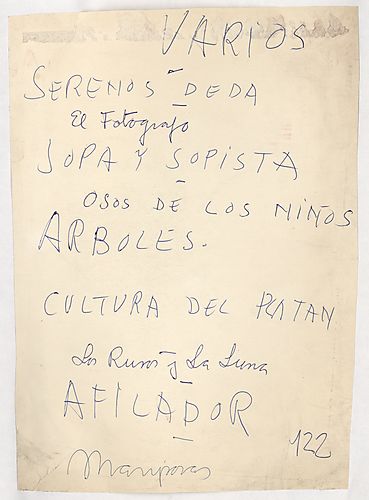 VARIOS
SERENOS - DEDA
El Fotografo
SOPA Y SOPISTA
OSOS DE LOS NIÑOS
ARBOLES.
CULTURA DEL PLATAN
Los Rusos y La Luna
AFILADOR
122
Mariposas